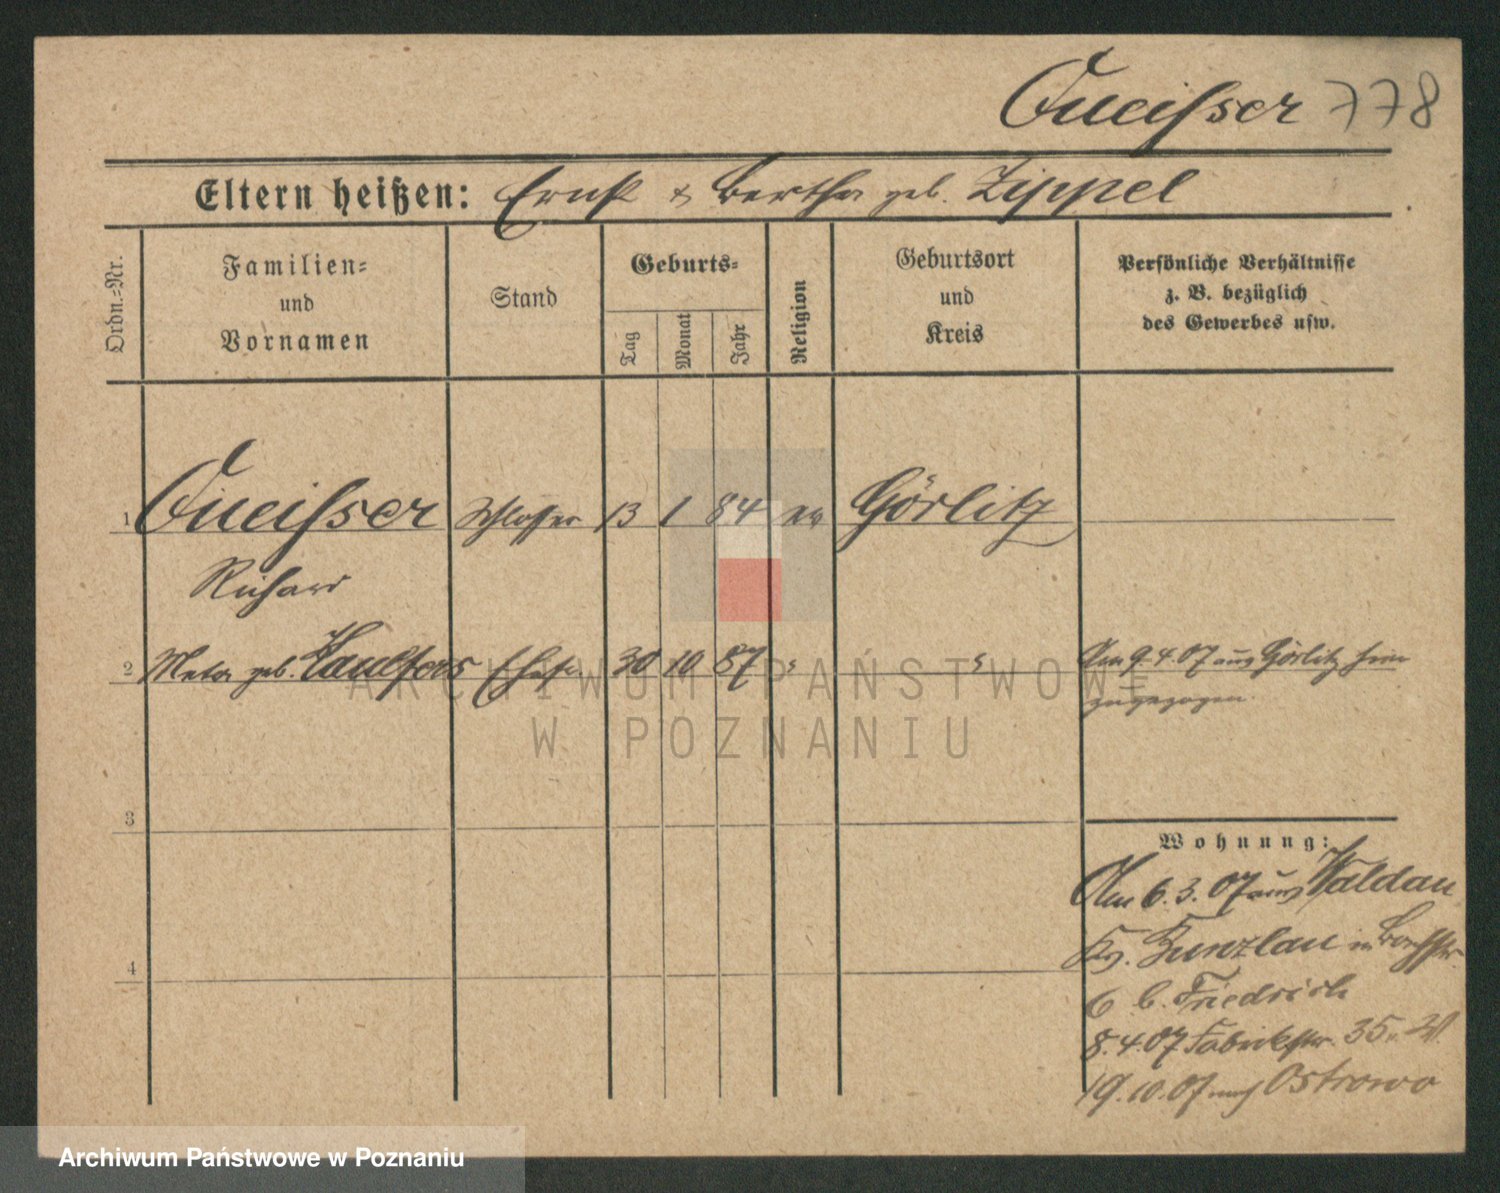 Queisser 778
Eltern heißen: Ernst & Bertha geb. Zippel
Ordn.=Nr.
Familien=
und
Vornamen
Stand
Geburts=
Tag
Monat
Jahr
Religion
Geburtsort
und
Kreis
Persönliche Verhältnisse
z. B. bezüglich
des Gewerbes usw.
1 Queisser Schlosser 13 1 84 ev Görlitz
Richard
2 Meta geb. Ehefr. 30 10 87 " " Am 9.4.07 aus Görlitz hier
zugezogen
3
Wohnung:
Am 6.3.07 aus Waldau
Kr. Bunzlau in
4
6 b. Friedrich
8.4.07 Fabrikstr. 35
19.10.07 nach Ostrowo
ARCHIWUM PAŃSTWOWE
W POZNANIU
Archiwum Państwowe w Poznaniu